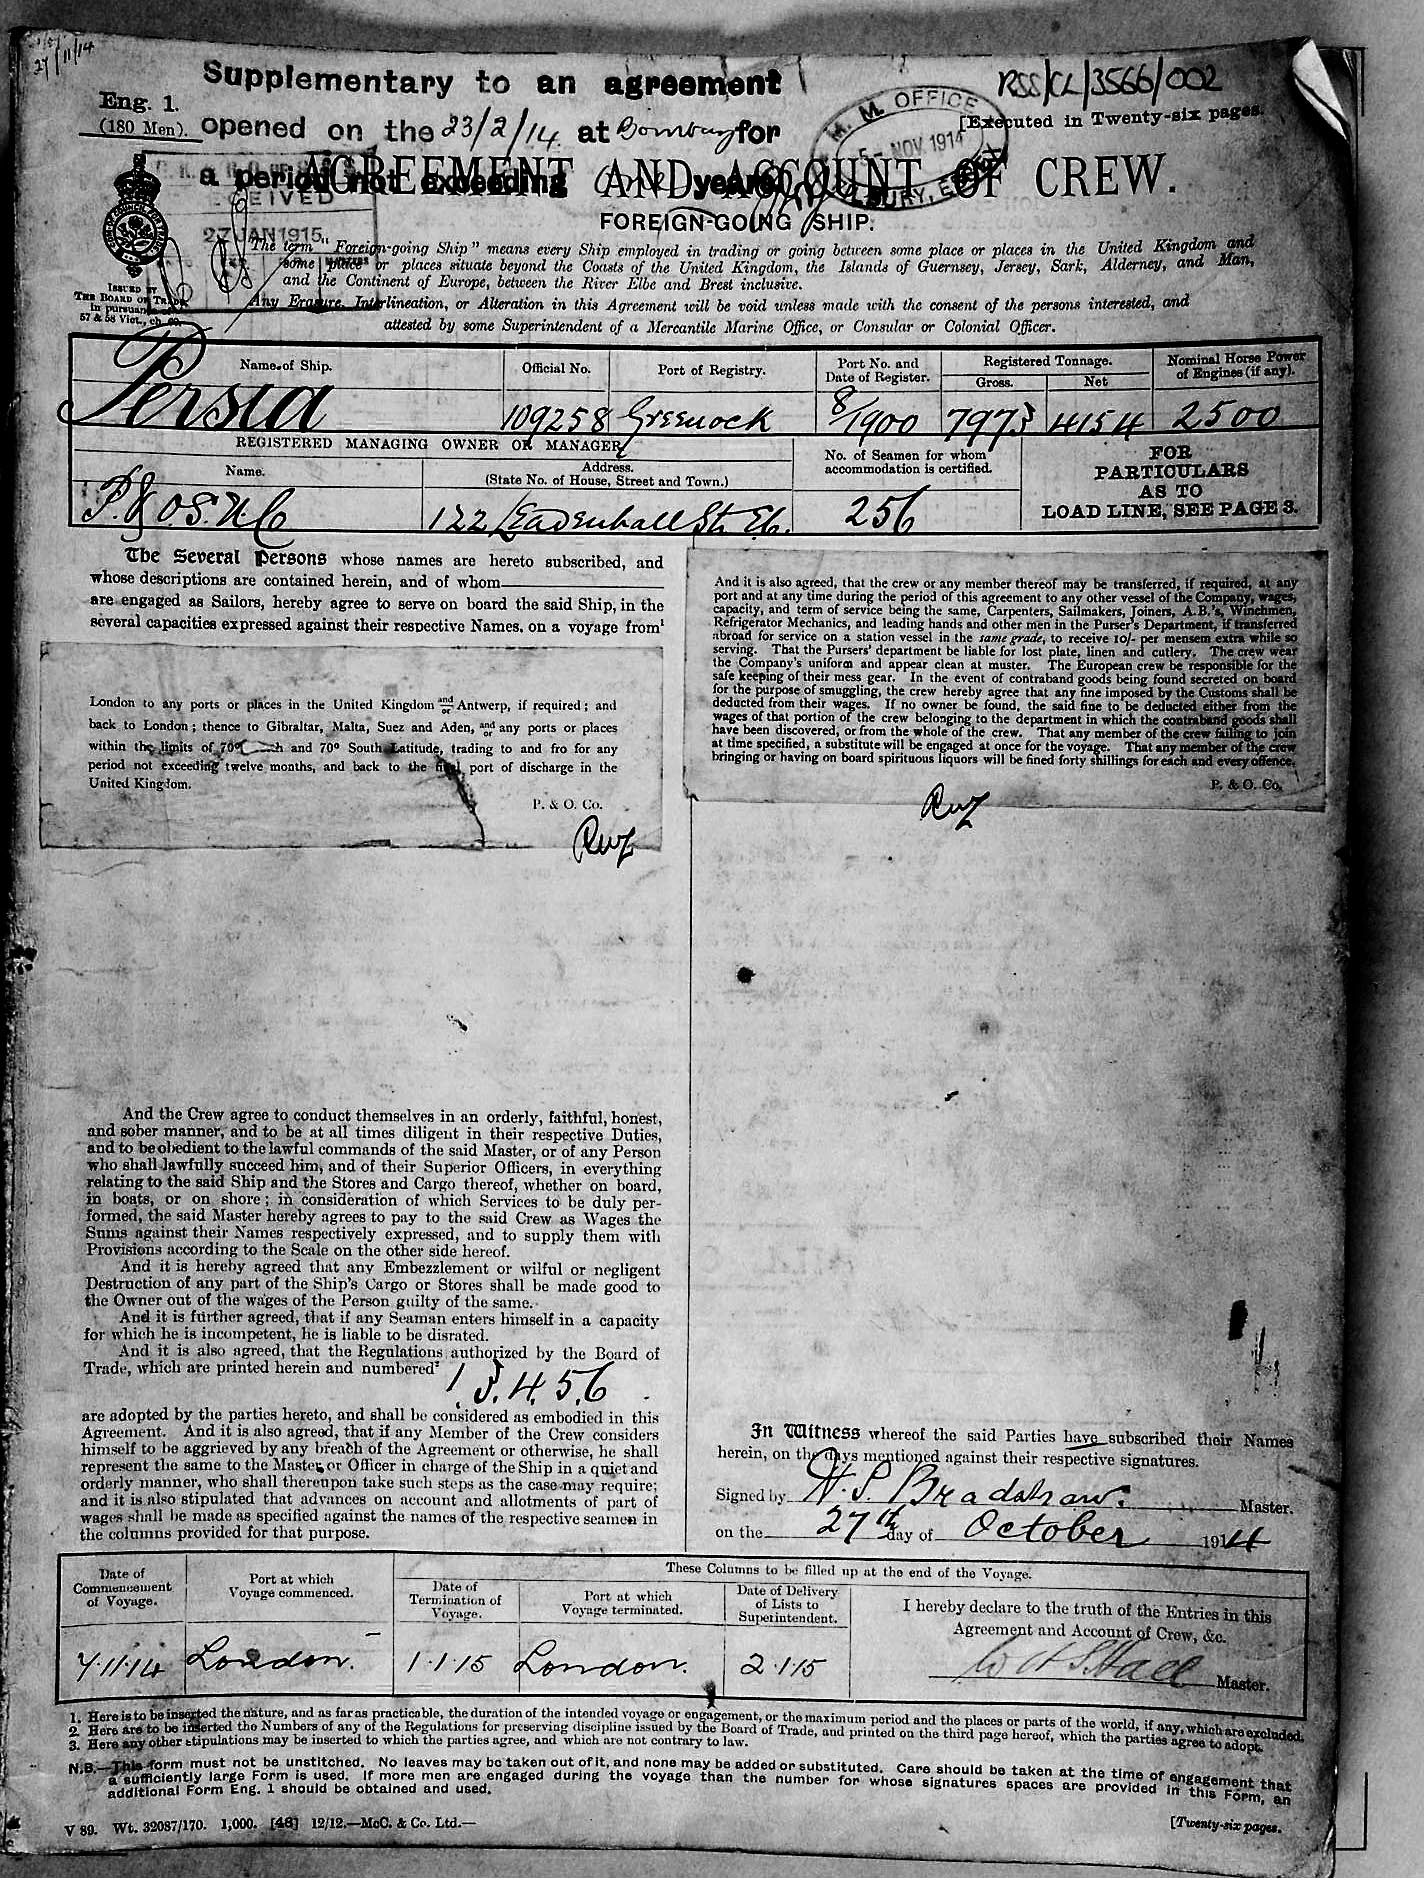 27/11/14
Supplementary to an agreement
RSS/CL/3566/002
Eng. 1.
(180 Men).
opened on the 23/2/14 at Bombay for
[Executed in Twenty-six pages.
M. M. OFFICE
5 - NOV 1914
TILBURY, ESSEX
AGREEMENT AND ACCOUNT OF CREW.
a period not exceeding One years.
RECEIVED
27 JAN 1915
FOREIGN-GOING SHIP.
The term "Foreign-going Ship" means every Ship employed in trading or going between some place or places in the United Kingdom and
some place or places situate beyond the Coasts of the United Kingdom, the Islands of Guernsey, Jersey, Sark, Alderney, and Man,
and the Continent of Europe, between the River Elbe and Brest inclusive.
ISSUED BY
THE BOARD OF TRADE
In pursuance of
57 & 58 Vict., ch. 60.
Any Erasure, Interlineation, or Alteration in this Agreement will be void unless made with the consent of the persons interested, and
attested by some Superintendent of a Mercantile Marine Office, or Consular or Colonial Officer.
Name of Ship. Official No. Port of Registry. Port No. and Date of Register. Registered Tonnage. Gross. Net Nominal Horse Power of Engines (if any).
Persia 109258 Greenock 8/1900 7973 4154 2500
REGISTERED MANAGING OWNER OR MANAGER
Name. Address. (State No. of House, Street and Town.) No. of Seamen for whom accommodation is certified.
P. & O. S. N. Co 122 Leadenhall St. E.C. 256
FOR
PARTICULARS
AS TO
LOAD LINE, SEE PAGE 3.
The Several Persons whose names are hereto subscribed, and
whose descriptions are contained herein, and of whom
are engaged as Sailors, hereby agree to serve on board the said Ship, in the
several capacities expressed against their respective Names, on a voyage from¹
London to any ports or places in the United Kingdom and/or Antwerp, if required; and
back to London; thence to Gibraltar, Malta, Suez and Aden, and/or any ports or places
within the limits of 70° and 70° South Latitude, trading to and fro for any
period not exceeding twelve months, and back to the final port of discharge in the
United Kingdom.
P. & O. Co.
And it is also agreed, that the crew or any member thereof may be transferred, if required, at any
port and at any time during the period of this agreement to any other vessel of the Company, wages,
capacity, and term of service being the same, Carpenters, Sailmakers, Joiners, A.B.'s, Winchmen,
Refrigerator Mechanics, and leading hands and other men in the Purser's Department, if transferred
abroad for service on a station vessel in the same grade, to receive 10/- per mensem extra while so
serving. That the Pursers' department be liable for lost plate, linen and cutlery. The crew wear
the Company's uniform and appear clean at muster. The European crew be responsible for the
safe keeping of their mess gear. In the event of contraband goods being found secreted on board
for the purpose of smuggling, the crew hereby agree that any fine imposed by the Customs shall be
deducted from their wages. If no owner be found, the said fine to be deducted either from the
wages of that portion of the crew belonging to the department in which the contraband goods shall
have been discovered, or from the whole of the crew. That any member of the crew failing to join
at time specified, a substitute will be engaged at once for the voyage. That any member of the crew
bringing or having on board spirituous liquors will be fined forty shillings for each and every offence.
P. & O. Co.
And the Crew agree to conduct themselves in an orderly, faithful, honest,
and sober manner, and to be at all times diligent in their respective Duties,
and to be obedient to the lawful commands of the said Master, or of any Person
who shall lawfully succeed him, and of their Superior Officers, in everything
relating to the said Ship and the Stores and Cargo thereof, whether on board,
in boats, or on shore; in consideration of which Services to be duly per-
formed, the said Master hereby agrees to pay to the said Crew as Wages the
Sums against their Names respectively expressed, and to supply them with
Provisions according to the Scale on the other side hereof.
And it is hereby agreed that any Embezzlement or wilful or negligent
Destruction of any part of the Ship's Cargo or Stores shall be made good to
the Owner out of the wages of the Person guilty of the same.
And it is further agreed, that if any Seaman enters himself in a capacity
for which he is incompetent, he is liable to be disrated.
And it is also agreed, that the Regulations authorized by the Board of
Trade, which are printed herein and numbered²
1. 3. 4. 5. 6
are adopted by the parties hereto, and shall be considered as embodied in this
Agreement. And it is also agreed, that if any Member of the Crew considers
himself to be aggrieved by any breach of the Agreement or otherwise, he shall
represent the same to the Master or Officer in charge of the Ship in a quiet and
orderly manner, who shall thereupon take such steps as the case may require;
and it is also stipulated that advances on account and allotments of part of
wages shall be made as specified against the names of the respective seamen in
the columns provided for that purpose.
In Witness whereof the said Parties have subscribed their Names
herein, on the days mentioned against their respective signatures.
Signed by H. S. Bradshaw. Master.
on the 27th day of October 1914
Date of Commencement of Voyage. Port at which Voyage commenced. These Columns to be filled up at the end of the Voyage.
Date of Termination of Voyage. Port at which Voyage terminated. Date of Delivery of Lists to Superintendent.
I hereby declare to the truth of the Entries in this
Agreement and Account of Crew, &c.
7.11.14 London. 1.1.15 London. 2.1.15
W H S Hall Master.
1. Here is to be inserted the nature, and as far as practicable, the duration of the intended voyage or engagement, or the maximum period and the places or parts of the world, if any, which are excluded.
2. Here are to be inserted the Numbers of any of the Regulations for preserving discipline issued by the Board of Trade, and printed on the third page hereof, which the parties agree to adopt.
3. Here any other stipulations may be inserted to which the parties agree, and which are not contrary to law.
N.B.—This form must not be unstitched. No leaves may be taken out of it, and none may be added or substituted. Care should be taken at the time of engagement that
a sufficiently large Form is used. If more men are engaged during the voyage than the number for whose signatures spaces are provided in this Form, an
additional Form Eng. 1 should be obtained and used.
V 89. Wt. 32087/170. 1,000. [46] 12/12.—McC. & Co. Ltd.—
[Twenty-six pages.